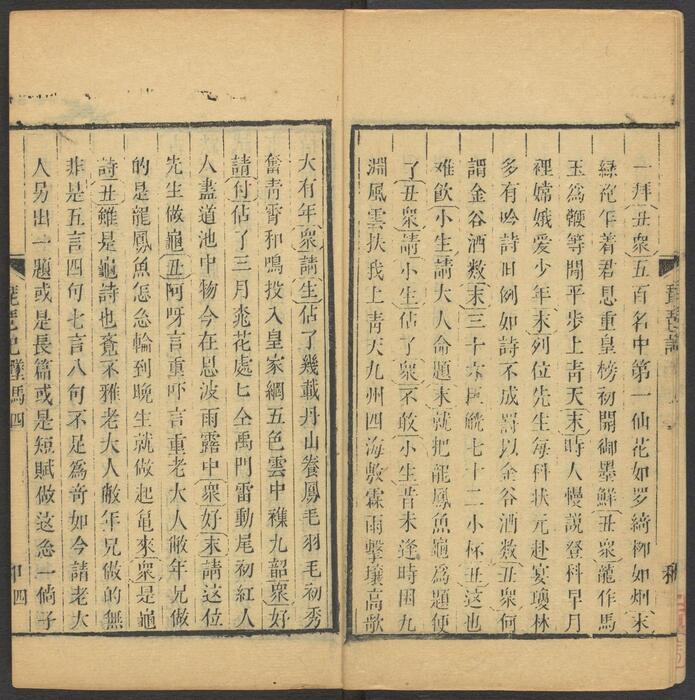 一拜丑衆五百名中第一仙花如罗綺柳如烟末
綠袍乍着君恩重皇榜初開御墨鮮丑衆龍作馬
玉爲鞭等閒平步上青天末時人慢説登科早月
裡嫦娥愛少年末列位先生每科狀元赴宴瓊林
多有吟詩旧例如詩不成罰以金谷酒数丑衆何
謂金谷酒数末三十六大觥七十二小杯丑这也
难飲小生請大人命題末就把龍鳳魚龜爲題便
了丑衆請小生佔了衆不敢小生昔未逢時困九
淵風雲扶我上青天九州四海敷霖雨擊壤高歌
大有年衆請生佔了幾載丹山養鳳毛羽毛初秀
奮青霄和鳴投入皇家網五色雲中襍九韶衆好
請付佔了三月桃花處七仝禹門雷動尾初紅人
人盡道池中物今在恩波雨露中衆好末請这位
先生做龜丑阿呀言重吓言重老大人敝年兄做
的是龍鳳魚怎怎輪到晚生就做起龟來衆是龜
詩丑雖是龜詩也竟不雅老大人敝年兄做的無
非是五言四句七言八句不足爲奇如今請老大
人另出一題或是長篇或是短賦做这怎一倘子
琵琶記 䨇馬四
卩四